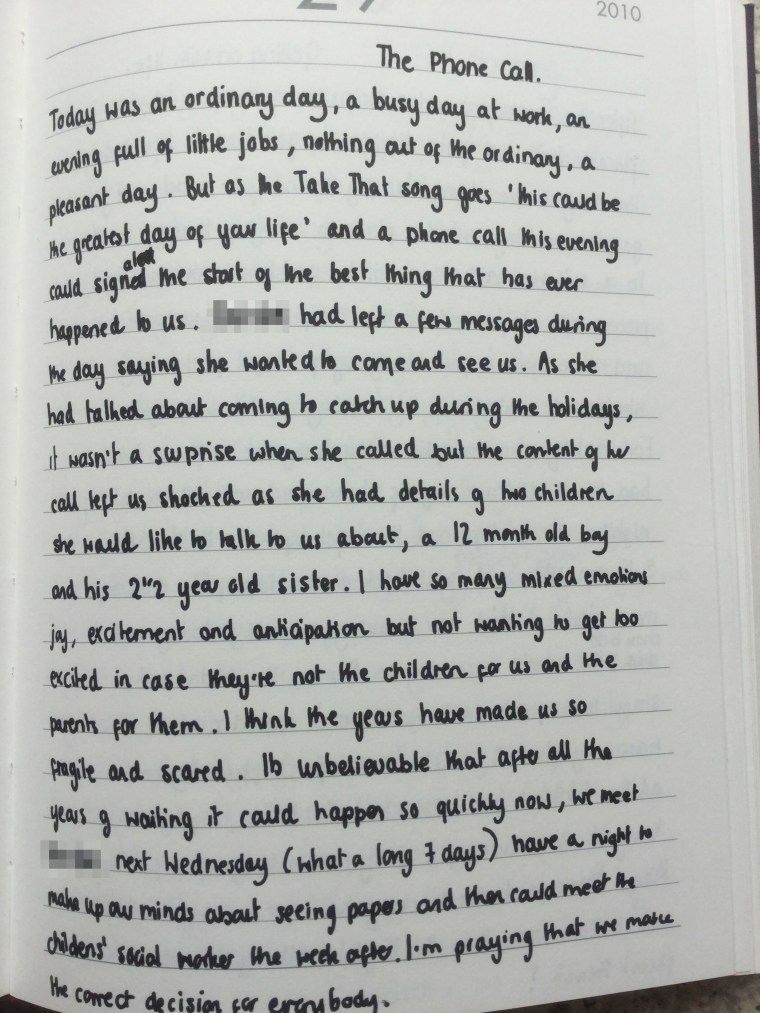 2010
The Phone Call.
Today was an ordinary day, a busy day at work, an
evening full of little jobs, nothing out of the ordinary, a
pleasant day. But as the Take That song goes 'this could be
the greatest day of your life' and a phone call this evening
could signal the start of the best thing that has ever
happened to us. had left a few messages during
the day saying she wanted to come and see us. As she
had talked about coming to catch up during the holidays,
it wasn't a surprise when she called but the content of her
call left us shocked as she had details of two children
she would like to talk to us about, a 12 month old boy
and his 2 1/2 year old sister. I have so many mixed emotions
joy, excitement and anticipation but not wanting to get too
excited in case they're not the children for us and the
parents for them. I think the years have made us so
fragile and scared. Its unbelievable that after all the
years of waiting it could happen so quickly now, we meet
next Wednesday (what a long 7 days) have a night to
make up our minds about seeing papers and then could meet the
childens' social worker the week after. I'm praying that we make
the correct decision for everybody.